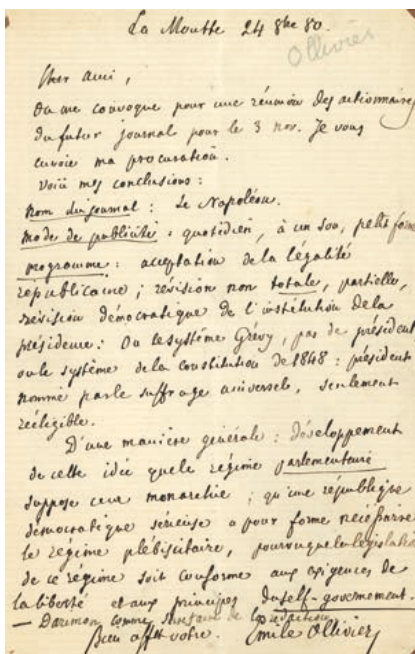 La Moutte 24 8bre 80.
Ollivier
Cher ami,
On me convoque pour une réunion des actionnaires
du futur journal pour le 3 nov. Je vous
envoie ma procuration.
Voici mes conclusions :
Nom du journal : Le Napoléon.
Mode de publicité : quotidien, à un sou, petite forme
programme : acceptation de la légalité
républicaine ; révision non totale, partielle,
révision démocratique de l'institution de la
présidence : Ou le système Grévy, pas de président
ou le système de la constitution de 1848 : président
nommé par le suffrage universel, seulement
rééligible.
D'une manière générale : développement
de cette idée que le régime parlementaire
suppose une monarchie ; qu'une république
démocratique sérieuse a pour forme nécessaire
le régime plébiscitaire, pourvu que la législation
de ce régime soit conforme aux exigences de
la liberté et aux principes du self-government.
— Darimon comme secrétaire de la rédaction
Bien aff. votre. Emile Ollivier